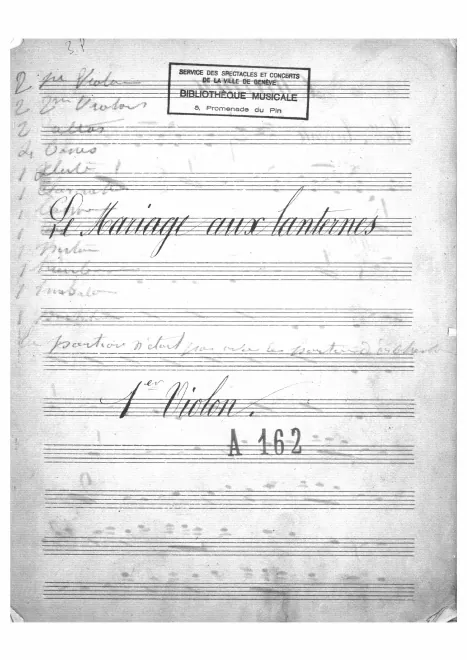 38
SERVICE DES SPECTACLES ET CONCERTS
DE LA VILLE DE GENÈVE
BIBLIOTHÈQUE MUSICALE
5, Promenade du Pin
2 1er Violon
2 2me Violons
2 altos
2 Basses
1 flute 1
1
1
1
Le Mariage aux lanternes
1 piston
1 trombone
1 timbales
1
partition n'était pas avec les parties d'orchestre
1er Violon.
A 162